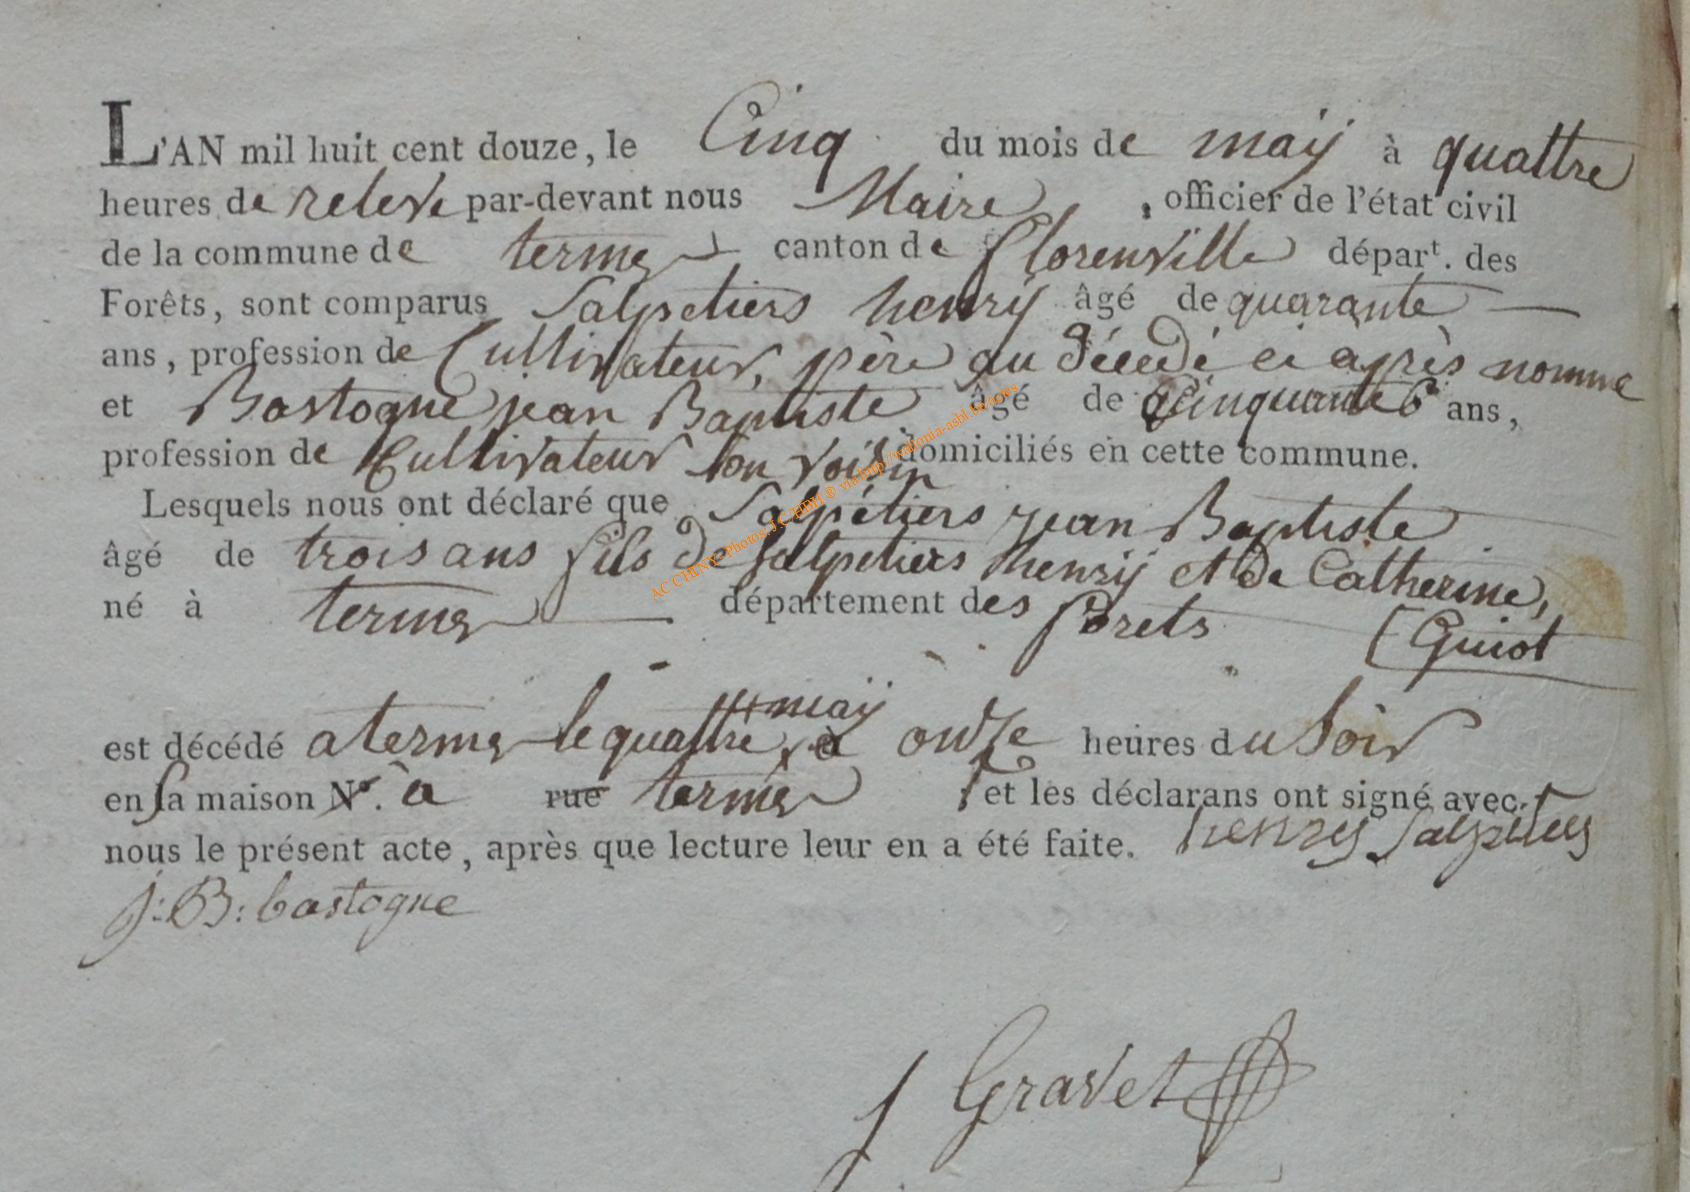 L'AN mil huit cent douze, le Cinq du mois de maÿ à quattre
heures de relevé par-devant nous Maire, officier de l'état civil
de la commune de termes canton de florenville départ. des
Forêts, sont comparus Salpetiers henrÿ âgé de quarante
ans, profession de Cultivateur, père du décedé ci après nommé
et Bastogne jean Baptiste âgé de cinquante 6 ans,
profession de Cultivateur son voisin domiciliés en cette commune.
Lesquels nous ont déclaré que Salpétiers jean Baptiste
âgé de trois ans fils de salpetiers henrÿ et de Catherine,
né à termes département des forets [Guiot
maÿ
est décédé a termes le quattre à onze heures du soir
en sa maison N°. a rue termes et les déclarans ont signé avec
nous le présent acte, après que lecture leur en a été faite. henry Salpetiers
j: B: bastogne
Gravet
AC CHINY - Photos J.C. HDH ® via http://walfonia-asbl.be/actes